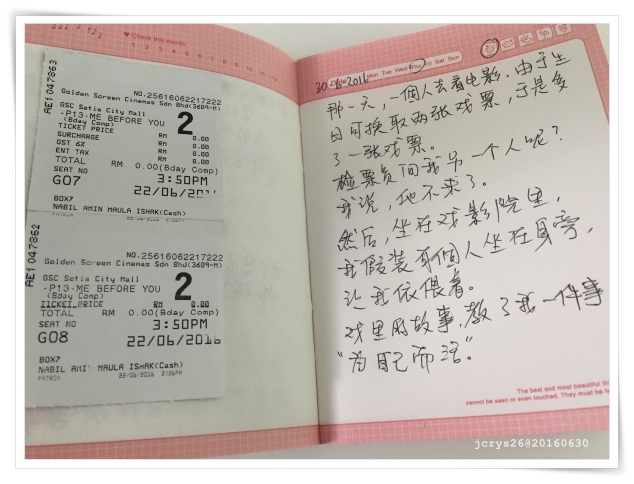 ♥ Check this month
1 2 3 4 5 6 7 8 9 10 11 12
AE1047863
NO.25616062217222
Golden Screen Cinemas Sdn Bhd(3609-M)
GSC Setia City Mall
-P13-ME BEFORE YOU
(Bday Comp)
2
TICKET PRICE RM 0.00
SURCHARGE RM 0.00
GST 6% RM 0.00
ENT TAX RM 0.00
TOTAL RM 0.00(Bday Comp)
SEAT NO 3:50PM
G07 22/06/201
BOX7
NABIL AMIN MAULA ISHAK(Cash)
AE1047862
NO.25616062217222
Golden Screen Cinemas Sdn Bhd(3609-M)
GSC Setia City Mall
-P13-ME BEFORE YOU
(Bday Comp)
2
TICKET PRICE RM 0.00
TOTAL RM 0.00(Bday Comp)
SEAT NO 3:50PM
G08 22/06/2016
BOX7
NABIL AMI MAULA ISHAK(Cash)
PATRON 22/06/2016
Date Mon Tue Wed Thu Fri Sat Sun
30 6 2016
那一天,一个人去看电影.由于生
日可换取两张戏票,于是多
了一张戏票。
检票员问我另一个人呢?
我说,他不来了。
然后,坐在戏影院里,
我假装有个人坐在身旁,
让我依偎着。
戏里的故事,教了我一件事
“为自己而活”。
The best and most beautiful thi
cannot be seen or even touched. They must be fe
jcrys26@20160630